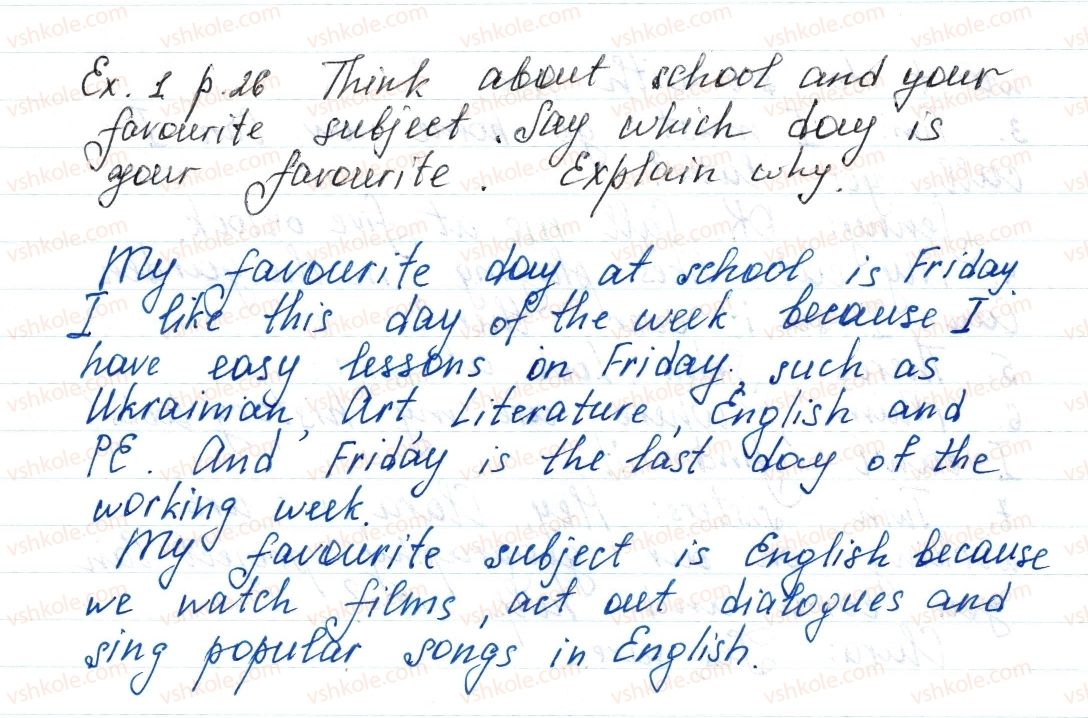 Ex. 1 p. 26 Think about school and your
favourite subject. Say which day is
your favourite. Explain why.
My favourite day at school is Friday.
I like this day of the week because I
have easy lessons on Friday, such as
Ukrainian, Art, Literature, English and
PE. And Friday is the last day of the
working week.
My favourite subject is English because
we watch films, act out dialogues and
sing popular songs in English.